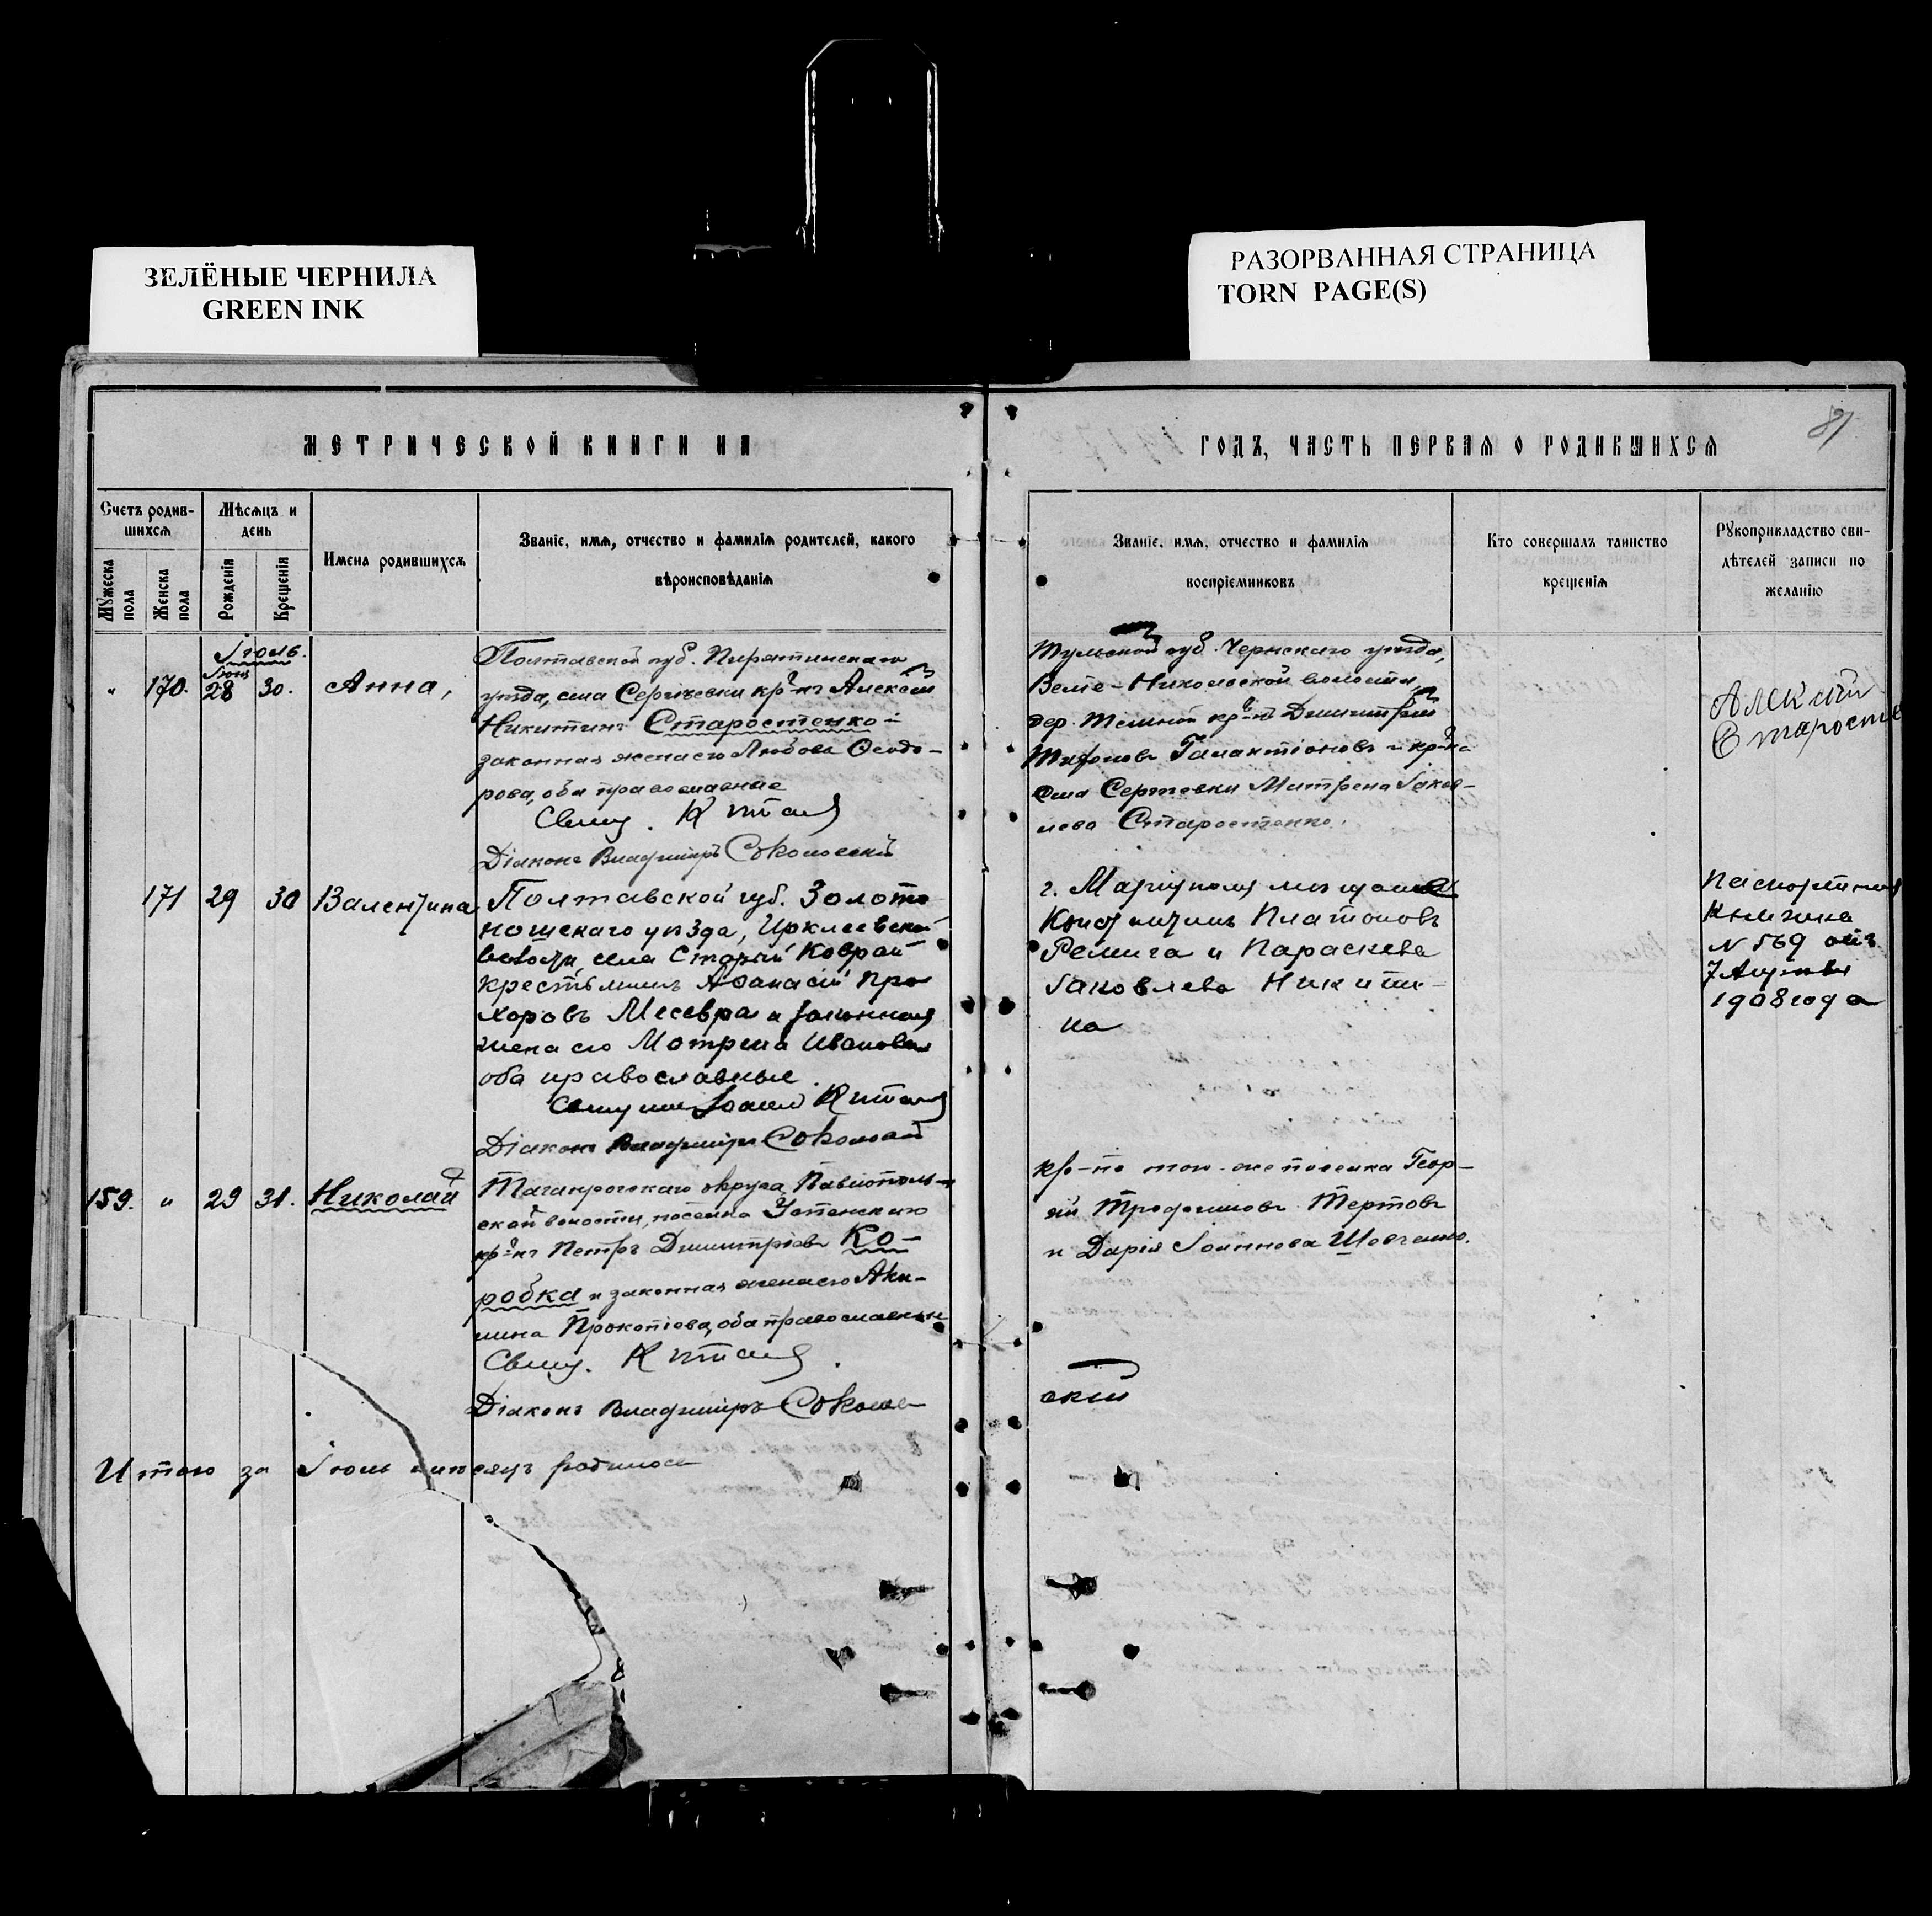 ЗЕЛЁНЫЕ ЧЕРНИЛА
GREEN INK
РАЗОРВАННАЯ СТРАНИЦА
TORN PAGE(S)
МЕТРИЧЕСКОЙ КНИГИ НА
Счетъ родив-
шихся
Мѣсяцъ и
день
Мужеска
пола
Женска
пола
Рожденія
Крещенія
Имена родившихся
Званіе, имя, отчество и фамилія родителей, какого
вѣроисповѣданія
Іюль.
170. 28 30. Анна,
Полтавской губ. Пирятинскаго
уѣзда, села Сергѣевки кр-нъ Алексѣй
Никитинъ Старостенко и
законная жена его Любовь Ѳеодо-
рова, оба православные
Свящ. Китай
Діаконъ Владиміръ Соколовскій
171 29 30 Валентина
Полтавской губ. Золото
ношскаго уѣзда, Ирклеевской
волости, села Старый Коврай
крестьянинъ Аѳанасій Про
хоровъ и законная
жена его Мотрена Иванова
оба православные
Священникъ Іоаннъ Китай
Діаконъ Владиміръ Соколовскій
159. " 29 31. Николай
Таганрогскаго округа, Павлополь-
ской волости, поселка Успенскаго
кр-нъ Петръ Димитріевъ Ко-
робка и законная жена его Аки-
лина Прокопіева, оба православные
Свящ. Китай
Діаконъ Владиміръ Соколов
Итого за Іюль мѣсяцъ родилось
81
ГОДЪ, ЧАСТЬ ПЕРВАЯ О РОДИВШИХСЯ
Званіе, имя, отчество и фамилія
воспріемниковъ
Кто совершалъ таинство
крещенія
Рукоприкладство сви-
дѣтелей записи по
желанію
Тульской губ. Чернскаго уѣзда,
Никольской волости,
дер. кр-нъ Димитрій
Галактіоновъ и кр-ка
села Сергѣевки Матрена Іаков-
лева Старостенко.
Алексѣй
Старосте
г. Маріуполя
Константинъ Платоновъ
Ремига и Параскева
Іаковлева Никити-
на
Паспортная
книжка
N 569 отъ
7 Августа
1908 года
кр-не того-же поселка Геор-
гій Трофимовъ Тертовъ
и Дарія Іоаннова Шевченко.
скій